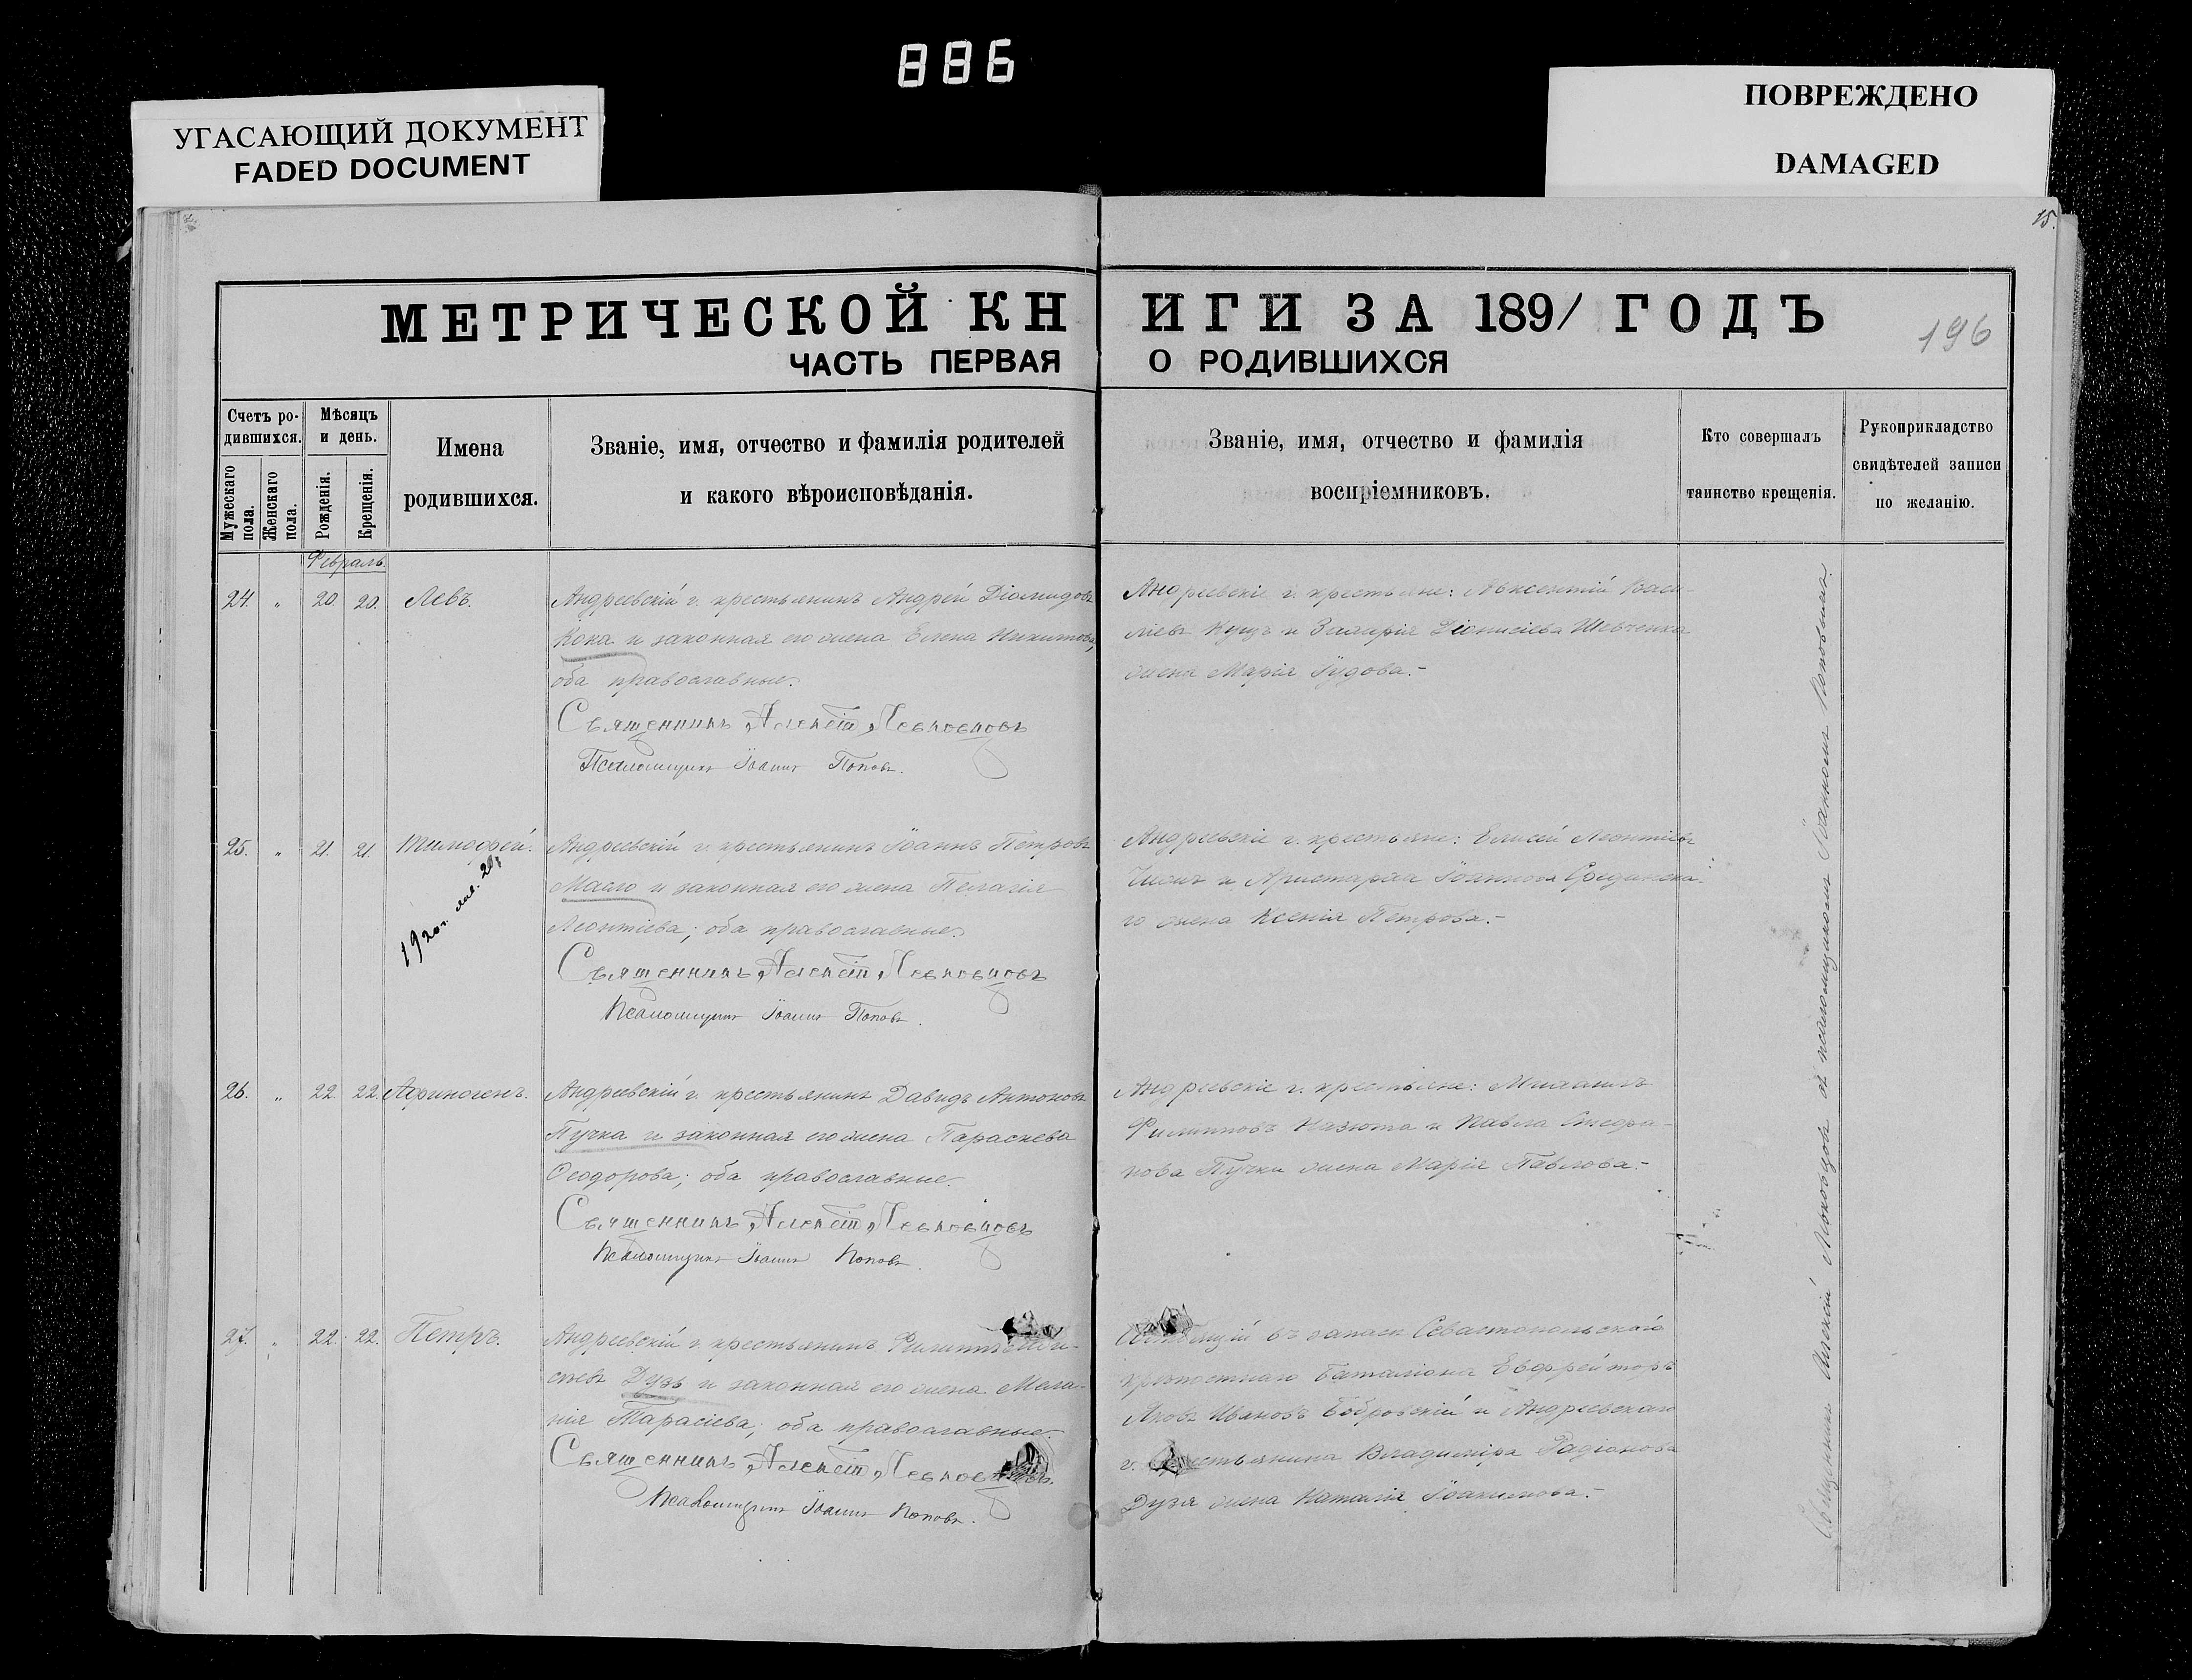 886
УГАСАЮЩИЙ ДОКУМЕНТ
FADED DOCUMENT
ПОВРЕЖДЕНО
DAMAGED
15.
МЕТРИЧЕСКОЙ КНИГИ ЗА 1891 ГОДЪ
196
ЧАСТЬ ПЕРВАЯ О РОДИВШИХСЯ
Счетъ ро-
дившихся.
Мужескаго пола.
Женскаго пола.
Мѣсяцъ
и день.
Рожденія.
Крещенія.
Имена
родившихся.
Званіе, имя, отчество и фамилія родителей
и какого вѣроисповѣданія.
Званіе, имя, отчество и фамилія
воспріемниковъ.
Кто совершалъ
таинство крещенія.
Рукоприкладство
свидѣтелей записи
по желанію.
Февраль.
24. " 20. 20. Левъ.
Андреевскій г. крестьянинъ Андрей Діомидовъ
Кока и законная его жена Елена Никитова,
оба православные.
Священникъ Алексій Левковцовъ
Псаломщикъ Іоаннъ Поповъ.
Андреевскіе г. крестьяне: Авксентій Васи-
ліевъ Куцъ и Діонисіева Шевченка
жена Марія
25. " 21. 21. Тимофей.
1920г. 29,
Андреевскій г. крестьянинъ Іоаннъ Петровъ
Масло и законная его жена Пелагія
Леонтіева; оба православные.
Священникъ Алексій Левковцовъ
Псаломщикъ Іоаннъ Поповъ.
Андреевскіе г. крестьяне: Елисей Леонтіевъ
и Аристарха Іоаннова
го жена Ксенія Петрова.-
26. " 22. 22. Афиногенъ.
Андреевскій г. крестьянинъ Давидъ Антоновъ
Пучка и законная его жена Параскева
Ѳеодорова; оба православные.
Священникъ Алексій Левковцовъ
Псаломщикъ Іоаннъ Поповъ.
Андреевскіе г. крестьяне: Михаилъ
Филипповъ и Павла Стефа-
нова Пучки жена Марія Павлова.-
27. " 22. 22. Петръ.
Андреевскій г. крестьянинъ Филиппъ
Дузь и законная его жена Мела-
нія Тарасіева; оба православные.
Священникъ Алексій
Псаломщикъ Іоаннъ Поповъ.
въ запасѣ Севастопольскаго
крѣпостнаго баталіона Ефрейторъ
Яковъ Ивановъ Бобровскій и Андреевскаго
г. крестьянина Владиміра Радіонова
Дузя жена Наталія Іоакимова.-
Священникъ Алексій Левковцовъ съ псаломщикомъ Іоанномъ Поповымъ.